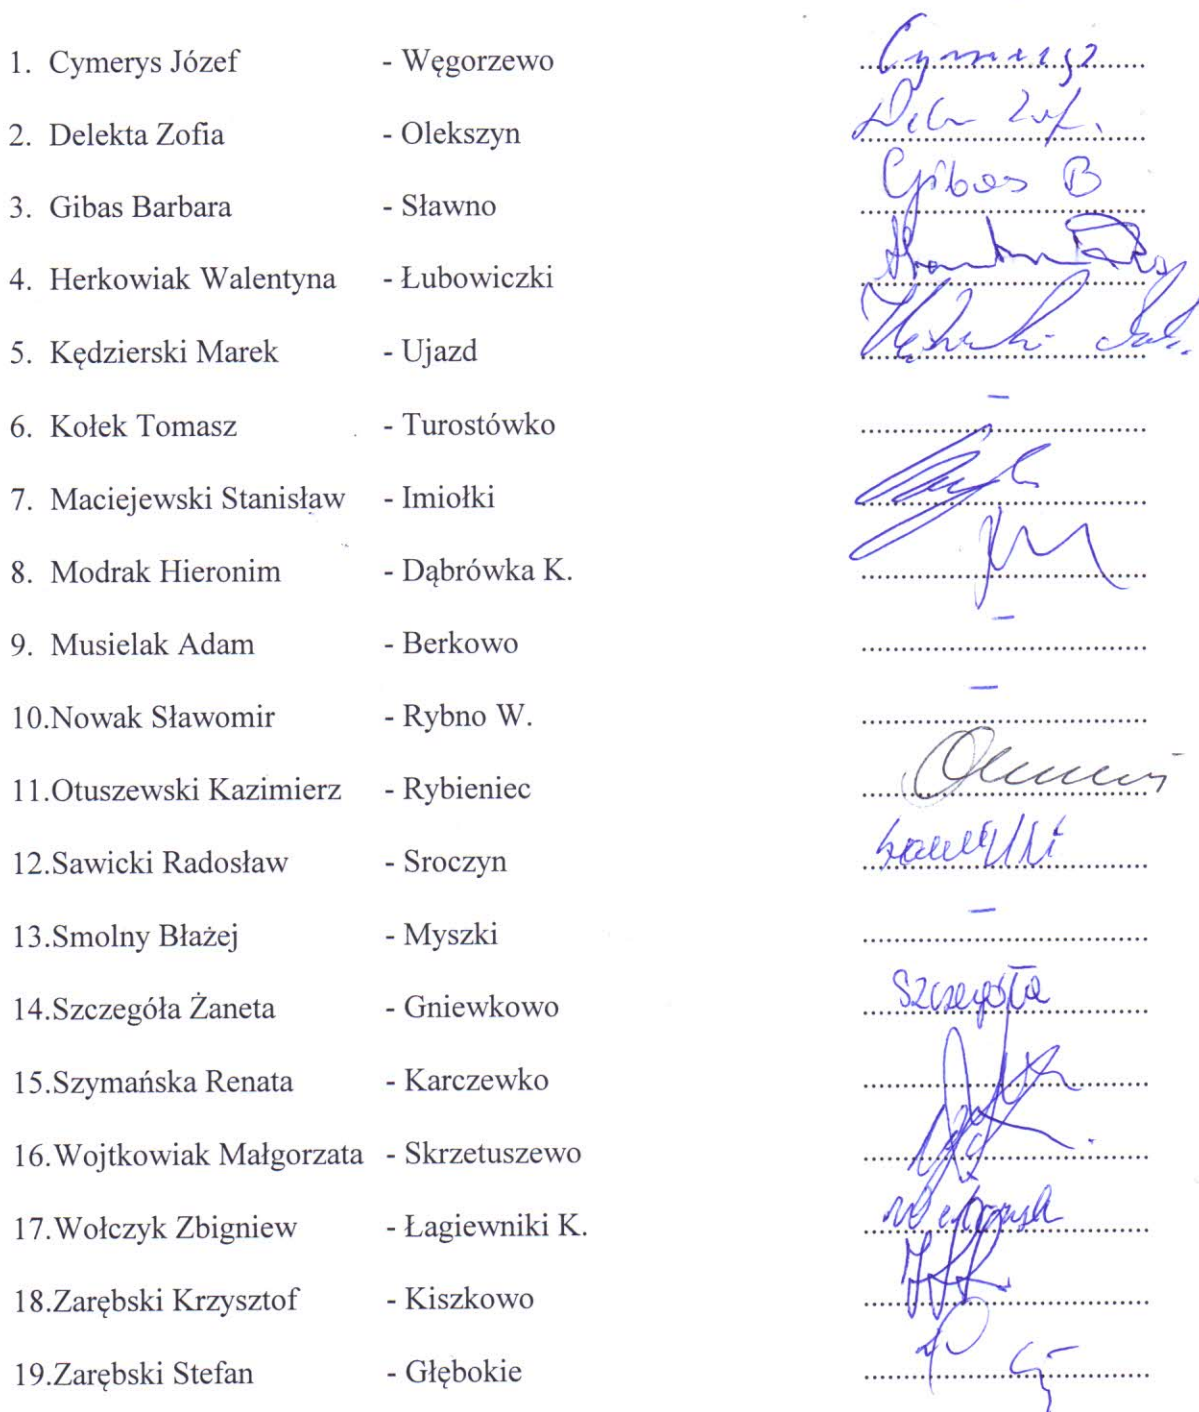 1. Cymerys Józef - Węgorzewo Cymerys
2. Delekta Zofia - Olekszyn
3. Gibas Barbara - Sławno Gibas B
4. Herkowiak Walentyna - Łubowiczki
5. Kędzierski Marek - Ujazd
6. Kołek Tomasz - Turostówko –
7. Maciejewski Stanisław - Imiołki
8. Modrak Hieronim - Dąbrówka K.
9. Musielak Adam - Berkowo –
10.Nowak Sławomir - Rybno W. –
11.Otuszewski Kazimierz - Rybieniec
12.Sawicki Radosław - Sroczyn
13.Smolny Błażej - Myszki –
14.Szczegóła Żaneta - Gniewkowo Szczegóła
15.Szymańska Renata - Karczewko
16.Wojtkowiak Małgorzata - Skrzetuszewo
17.Wołczyk Zbigniew - Łagiewniki K.
18.Zarębski Krzysztof - Kiszkowo
19.Zarębski Stefan - Głębokie